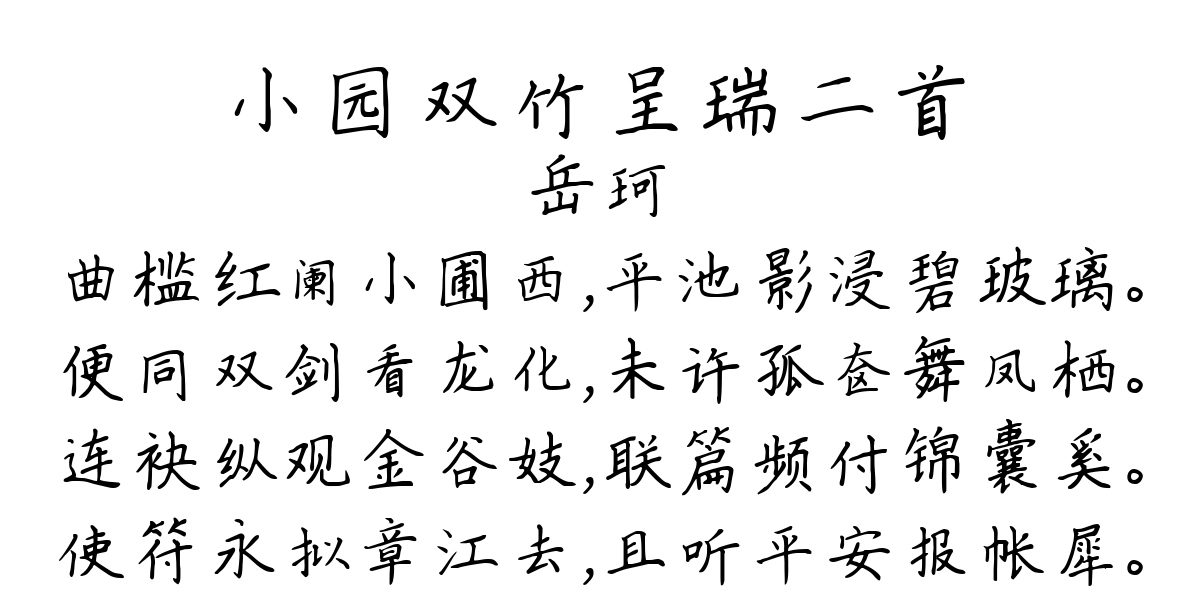 小园双竹呈瑞二首
岳珂
曲槛红阑小圃西,平池影浸碧玻璃。
便同双剑看龙化,未许孤奁舞凤栖。
连袂纵观金谷妓,联篇频付锦囊奚。
使符永拟章江去,且听平安报帐犀。